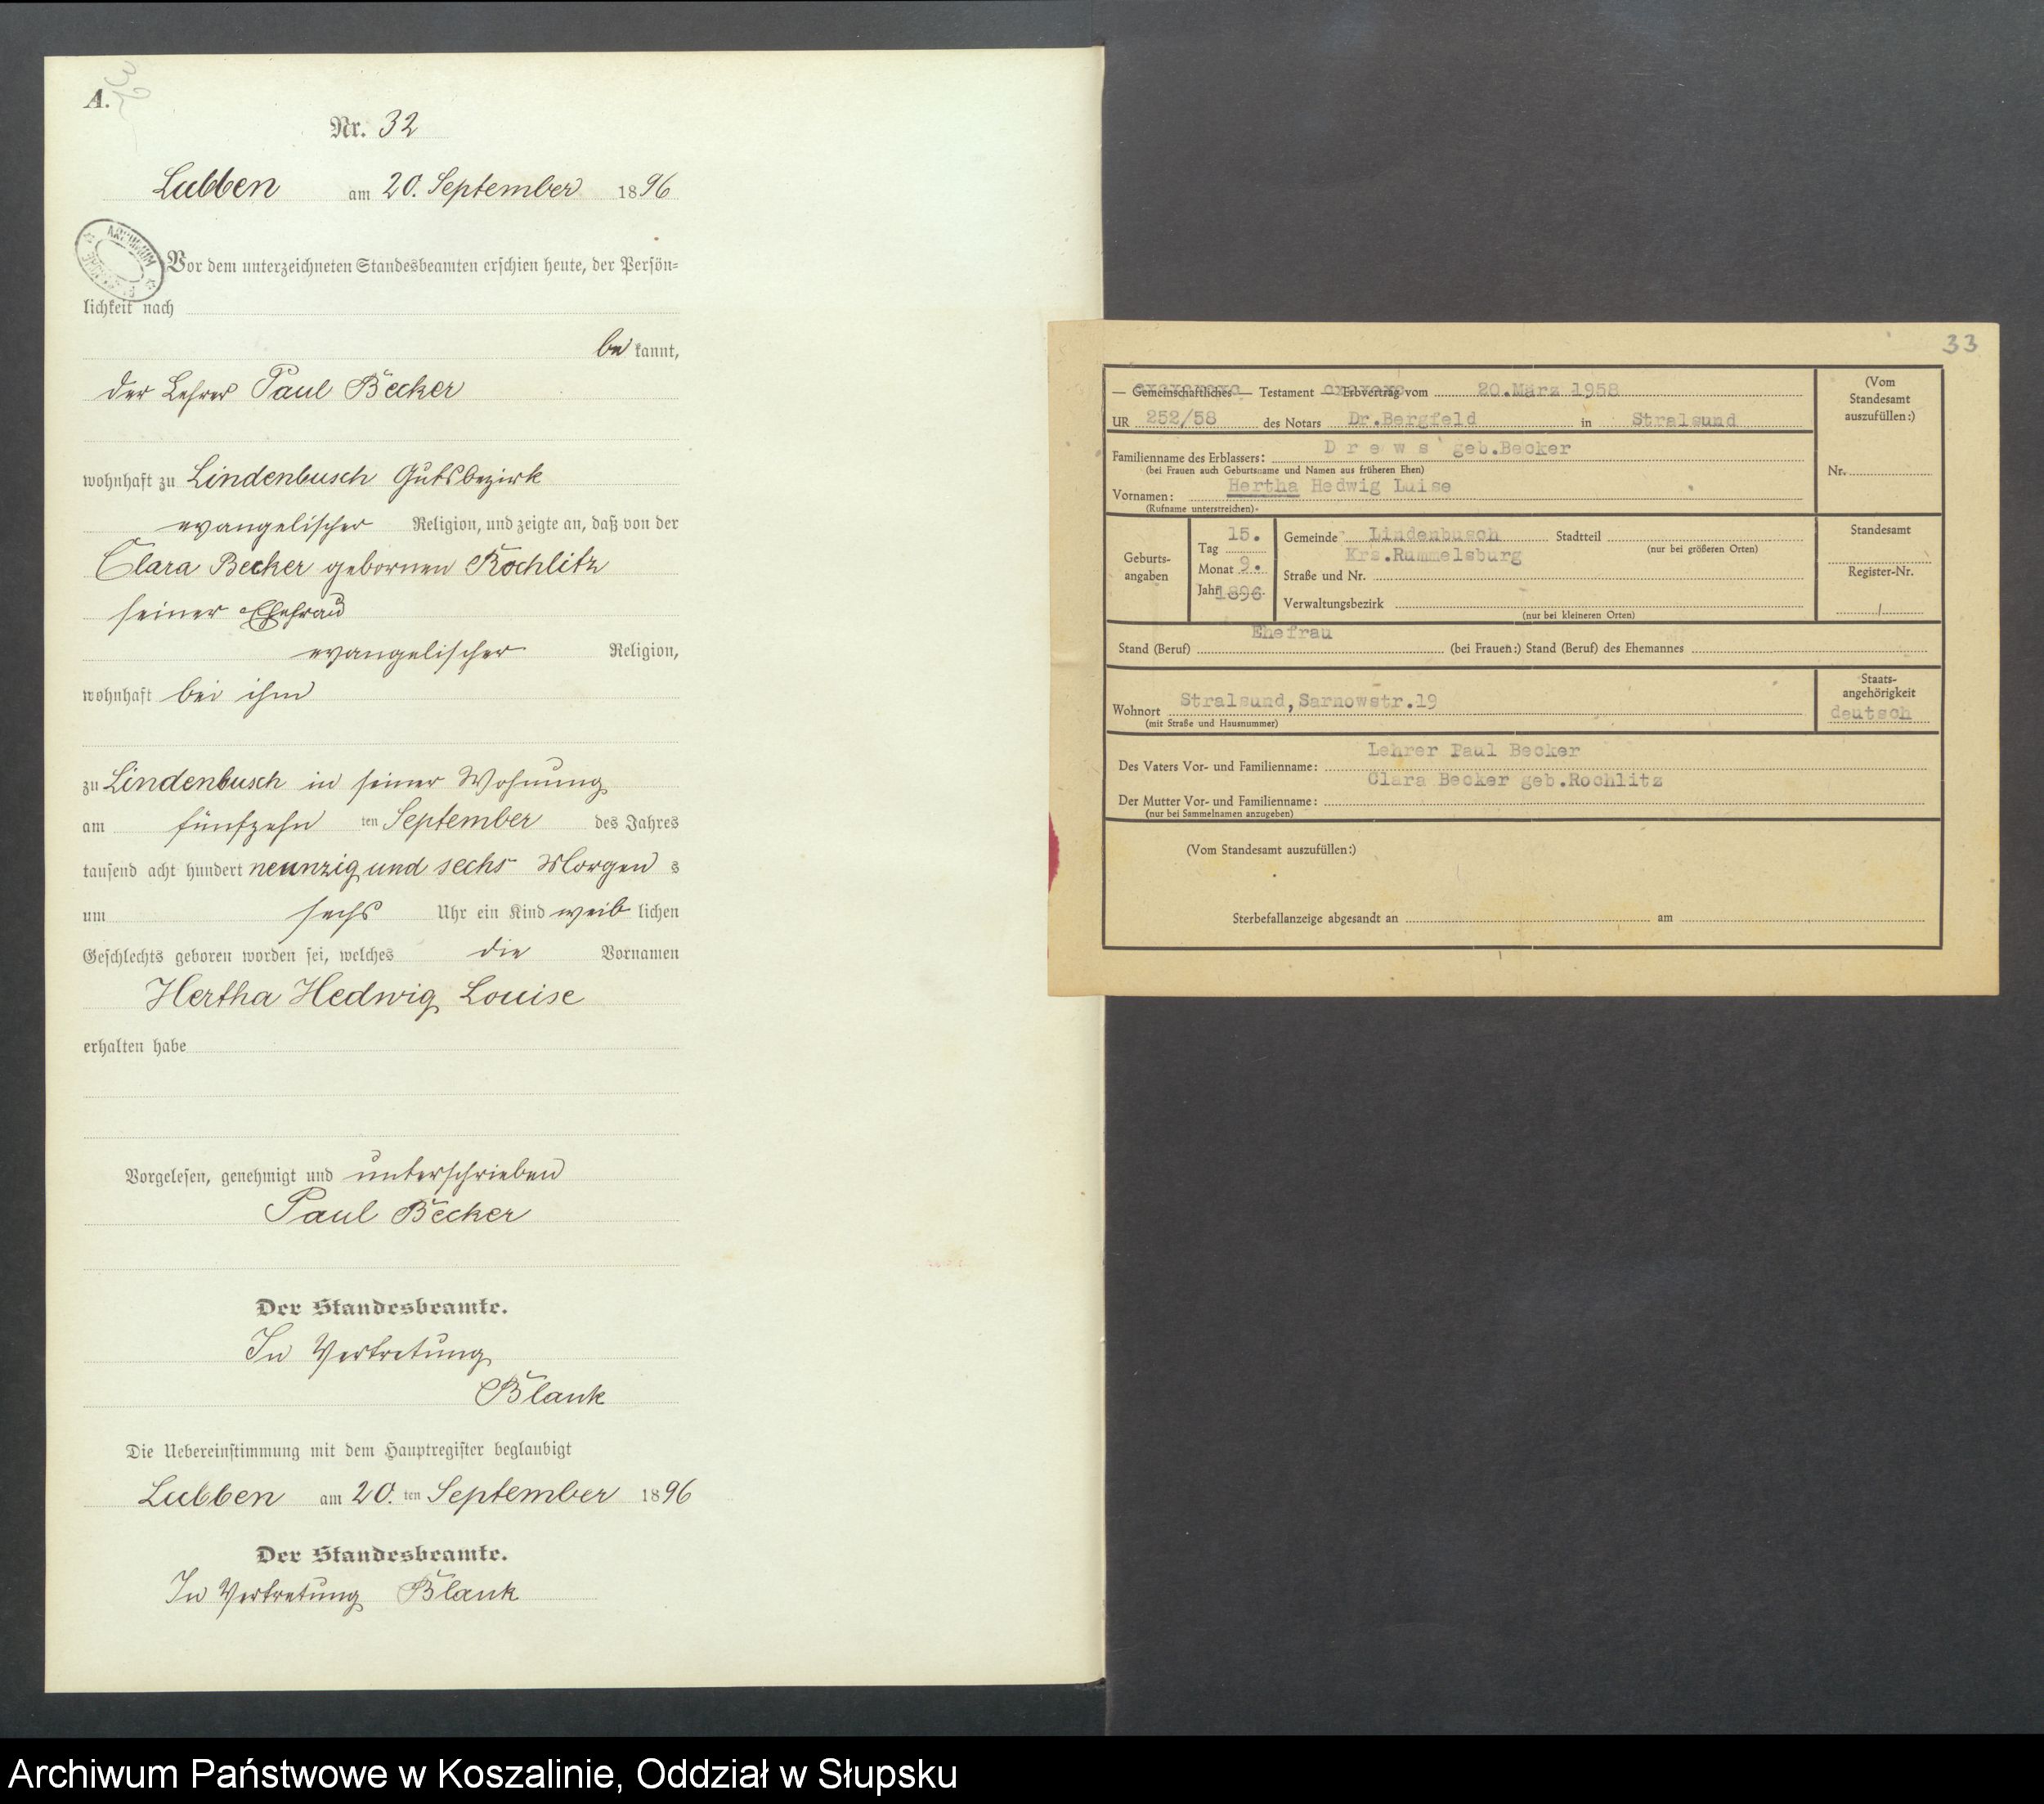 A.
Nr. 32
Lubben am 20. September 1896
ARCHIWUM
Vor dem unterzeichneten Standesbeamten erschien heute, der Persön=
lichkeit nach
be kannt,
der Lehrer Paul Becker
wohnhaft zu Lindenbusch Gutsbezirk
evangelischer Religion, und zeigte an, daß von der
Clara Becker gebornen Rochlitz
seiner Ehefrau
evangelischer Religion,
wohnhaft bei ihm
zu Lindenbusch in seiner Wohnung
am fünfzehn ten September des Jahres
tausend acht hundert neunzig und sechs Morgen s
um sechs Uhr ein Kind weib lichen
Geschlechts geboren worden sei, welches die Vornamen
Hertha Hedwig Louise
erhalten habe
Vorgelesen, genehmigt und unterschrieben
Paul Becker
Der Standesbeamte.
In Vertretung
Blank
Die Uebereinstimmung mit dem Hauptregister beglaubigt
Lubben am 20. ten September 1896
Der Standesbeamte.
In Vertretung Blank
33
— Gemeinschaftliches — Testament — Erbvertrag vom 20.März 1958
UR 252/58 des Notars Dr.Bergfeld in Stralsund
(Vom
Standesamt
auszufüllen:)
Nr.
Familienname des Erblassers: Drews geb.Becker
(bei Frauen auch Geburtsname und Namen aus früheren Ehen)
Vornamen: Hertha Hedwig Luise
(Rufname unterstreichen)
Geburts-
angaben
Tag 15.
Monat 9.
Jahr 1896
Gemeinde Lindenbusch Stadtteil
(nur bei größeren Orten)
Krs.Rummelsburg
Straße und Nr.
Verwaltungsbezirk
(nur bei kleineren Orten)
Standesamt
Register-Nr.
/
Ehefrau
Stand (Beruf) (bei Frauen:) Stand (Beruf) des Ehemannes
Wohnort Stralsund,Sarnowstr.19
(mit Straße und Hausnummer)
Staats-
angehörigkeit
deutsch
Lehrer Paul Becker
Des Vaters Vor- und Familienname:
Clara Becker geb.Rochlitz
Der Mutter Vor- und Familienname:
(nur bei Sammelnamen anzugeben)
(Vom Standesamt auszufüllen:)
Sterbefallanzeige abgesandt an am
Archiwum Państwowe w Koszalinie, Oddział w Słupsku